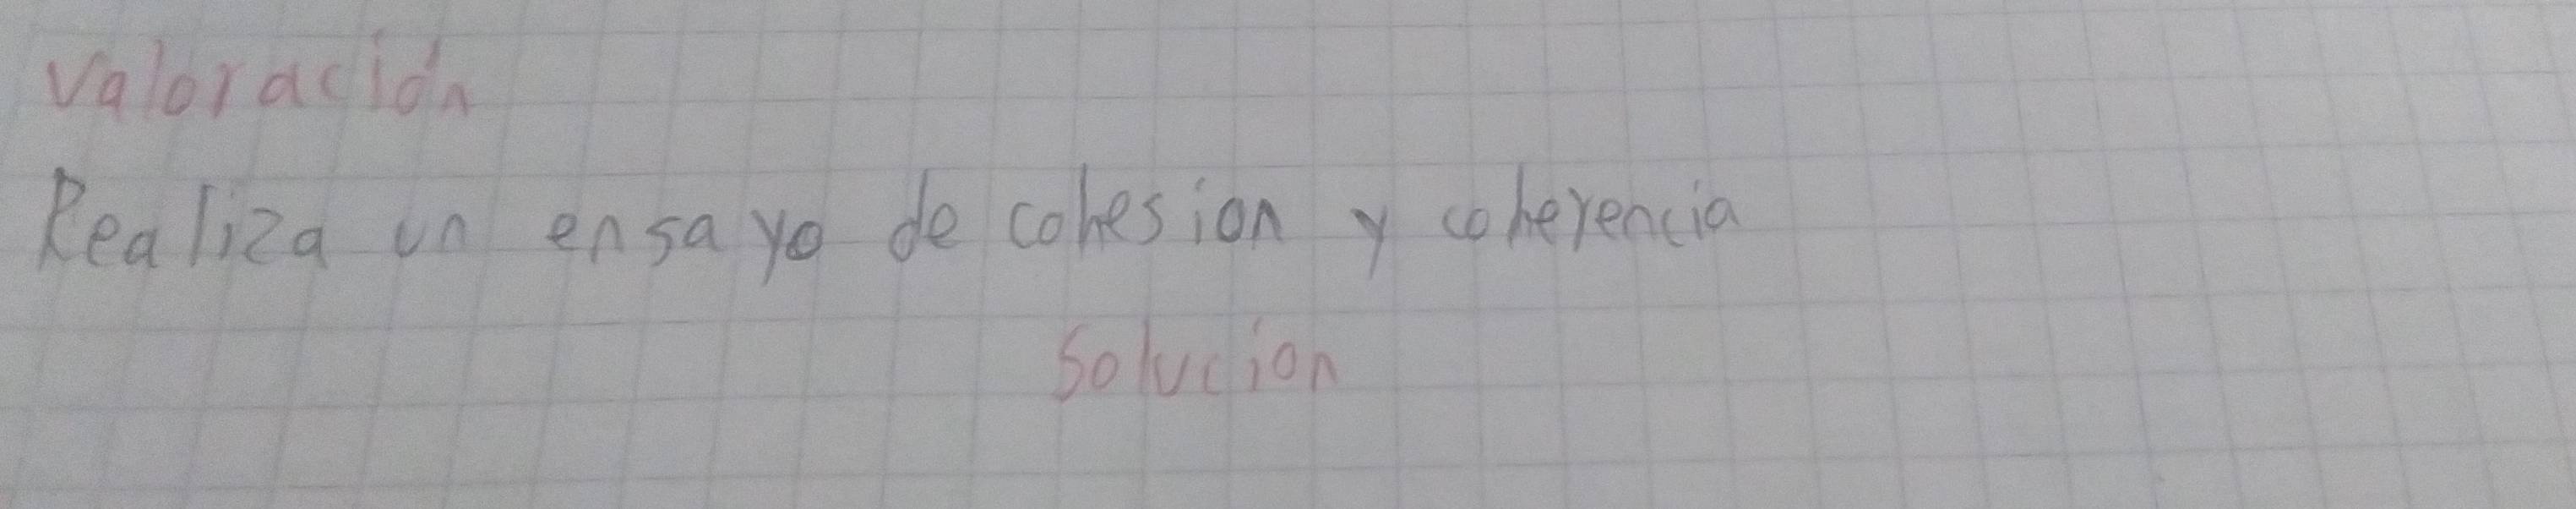 Valoración
Realiza un ensayo de cohesion y coherencia
Solucion